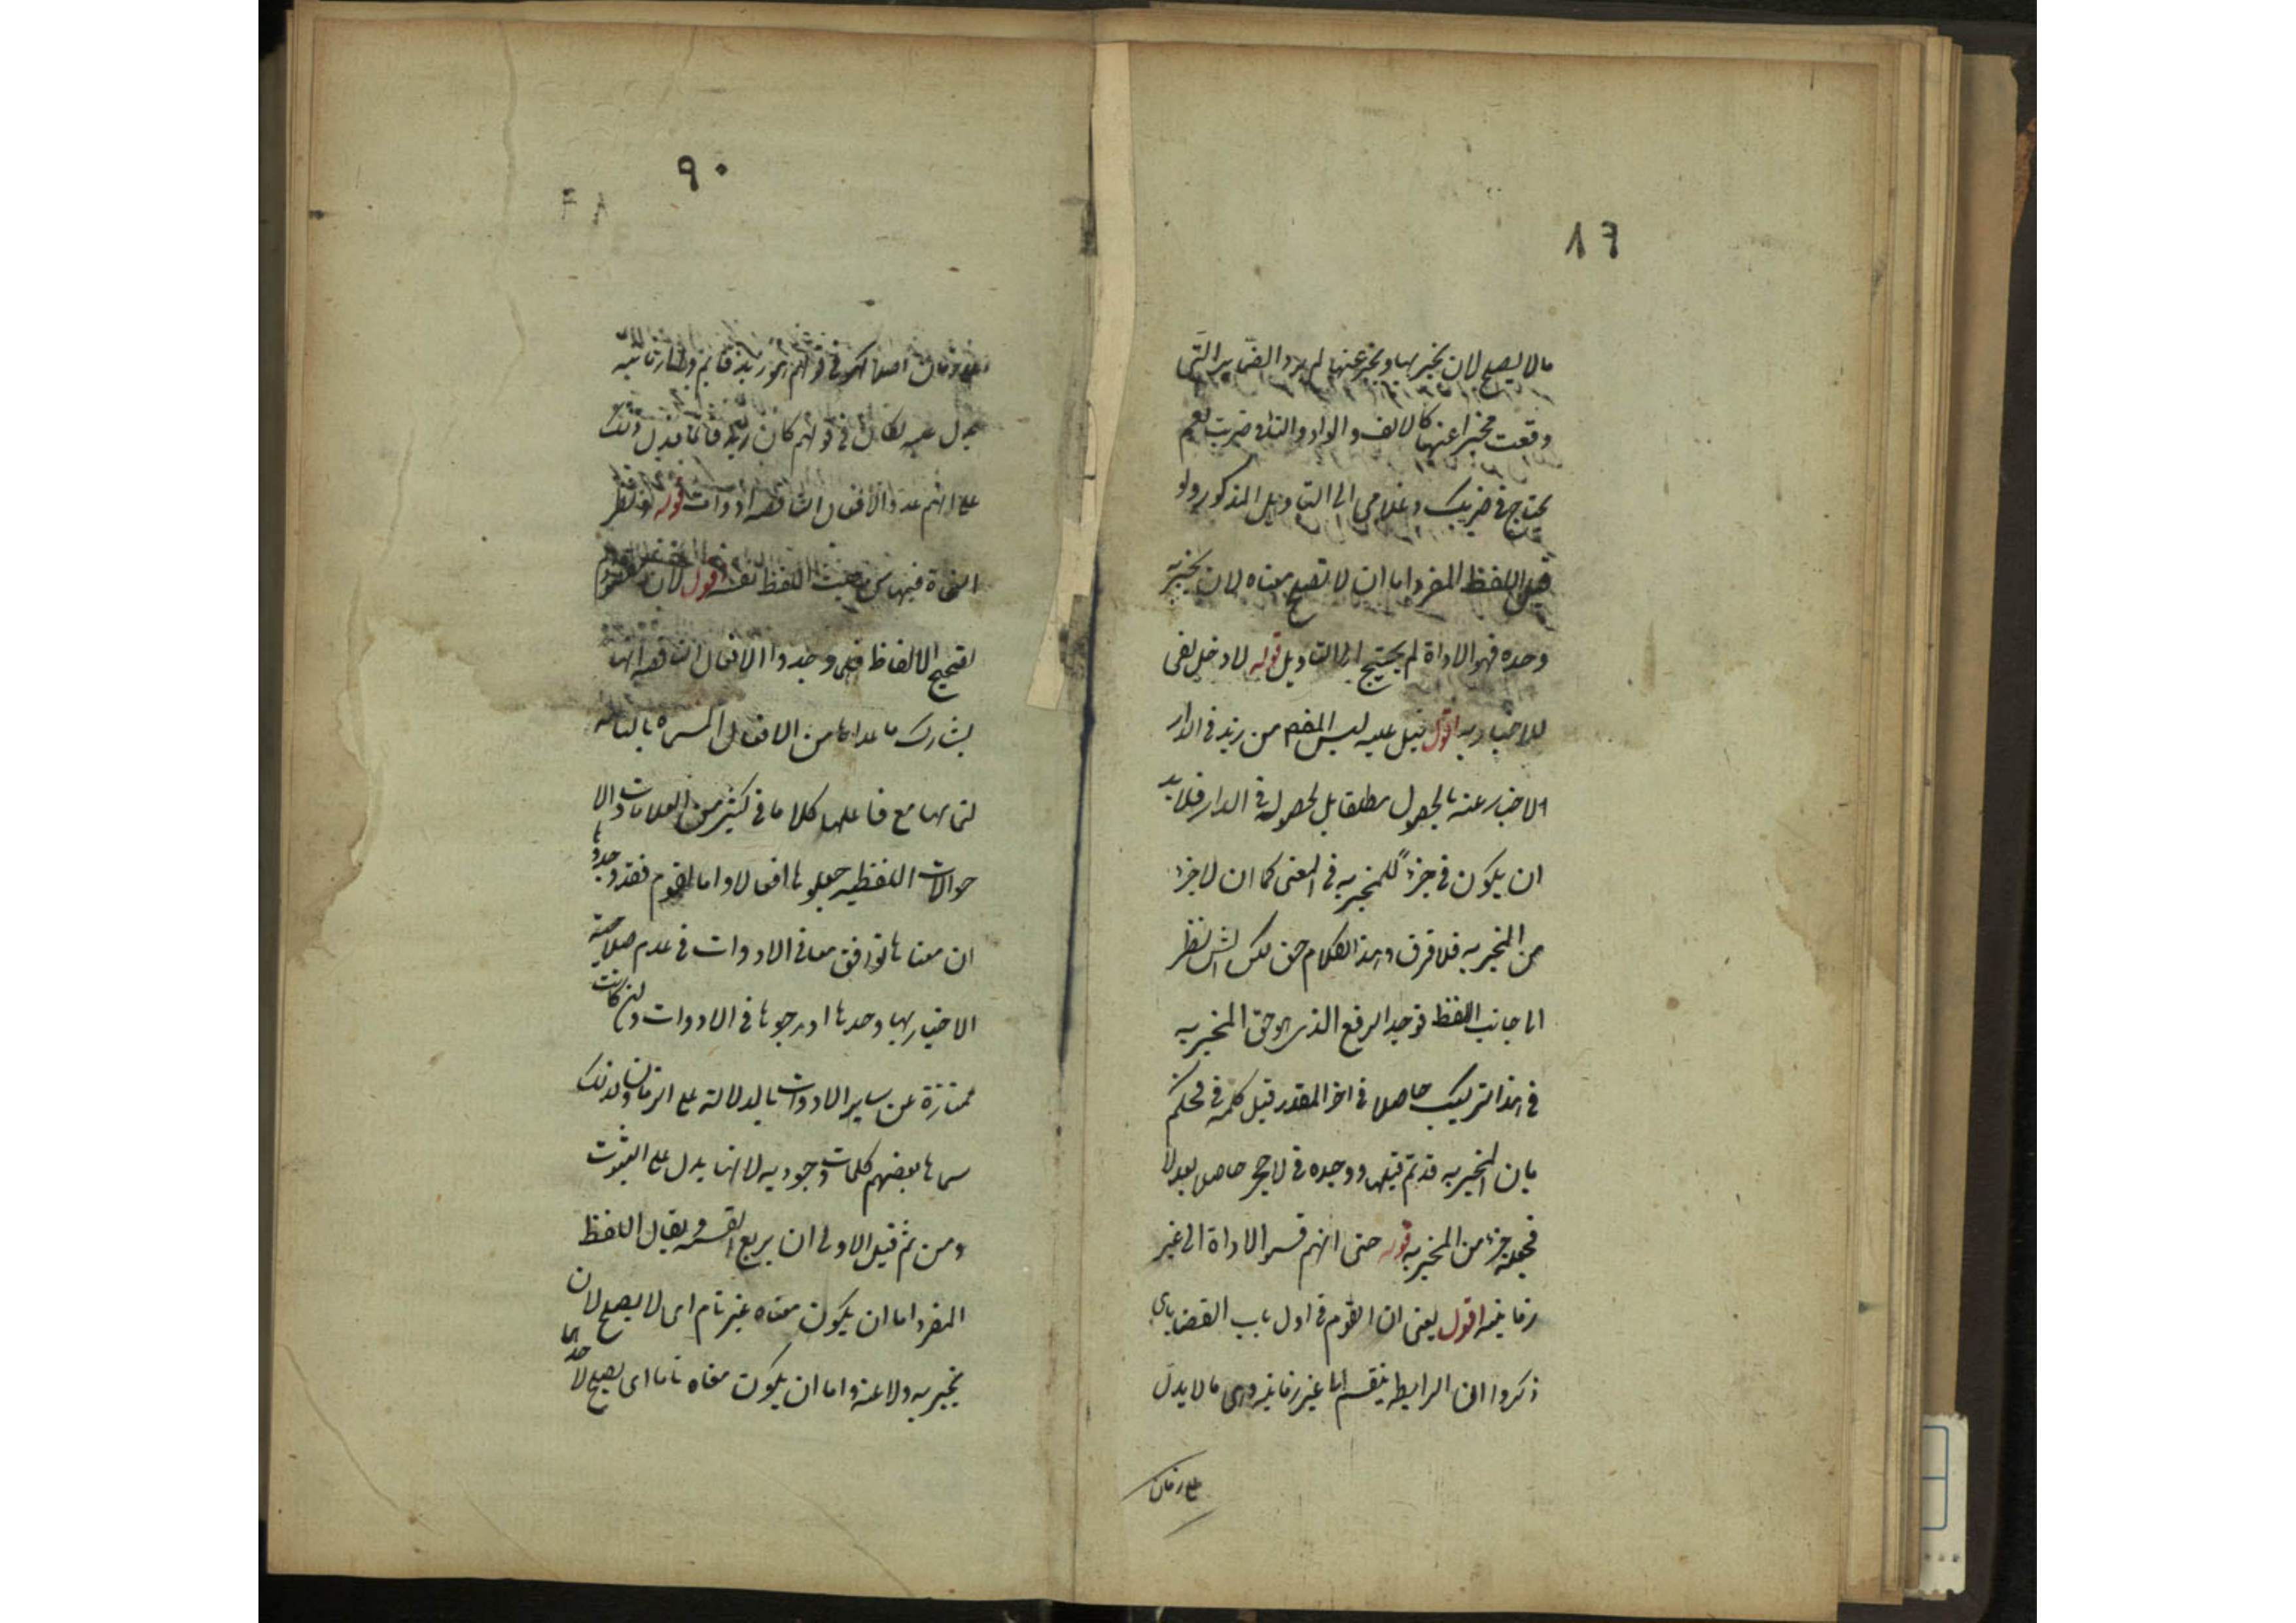 ١٦
ما لا يصلح لان يخبر بها ويخبر عنها لم يرد الضماير التى
وقعت مخبرا عنها كالالف والواو والتاء فى ضربت نعم
يحتاج فى ضربك وغلامى الى التاويل المذكور ولو
قيل اللفظ المفرد اما ان لا تصلح معناه لان يخبر به
وحده فهو الاداة لم يحتج الى التاويل قوله لا دخل لفى
للاخبار به اقول قيل عليه ليس المفهم من زيد فى الدار
الاخبار عنه بالحصول مطلقا بل لحصوله فى الدار فلا بد
ان يكون فى جزءً للمخبر به فى المعنى كما ان لا جزء
من المخبر به فلا فرق وهذا الكلام حق لكن الش نظر
الى جانب اللفظ فوجد الرفع الذى هو حق المخبر به
فى هذا التركيب حاصلا فى اخر المقدر قبل كلمة فى فحكم
بان المخبر به قد تم قبلها ووجده فى لا حجر حاصل بعد لا
فجعله جزء من المخبر به قوله حتى انهم قسموا الاداة الى غير
زمانيه اقول يعنى ان القوم فى اول باب القضاياى
ذكروا ان الرابطة ينقسم الى غير زمانيه وهى ما لا يدل
على زمان
٩٠
على زمان اصلا كهو فى قولهم هو زيد قايم والى زمانيه
يدل عليه ككان فى قولهم كان زيد قائما فدل ذلك
على انهم عدوا الافعال الناقصه ادوات قوله نظر
النحاة فيها من حيث اللفظ نفسه اقول لان
تصحيح الالفاظ فلما وجدوا الافعال الناقصه انها
يشارك ما عداها من الافعال المسماه بالتامه
لتمامها مع فاعلها كلاما فى كثير من العلامات والا
حوالات اللفظيه جعلوها افعالا واما القوم فقد وجدوا
ان معناها توافق معانى الادوات فى عدم صلاحية
الاخبار بها وحدها ادرجوها فى الادوات وان كانت
ممتازة عن ساير الادوات بالدلالة على الزمان ولذلك
سماها بعضهم كلمات وجوديه لانها يدل على الثبوت
ومن ثم قيل الاولى ان يربع القسمه ويقال اللفظ
المفرد اما ان يكون معناه غير تام اى لا يصلح لان
يخبر به ولا عنه واما ان يكون معناه تاما اى يصلح لا